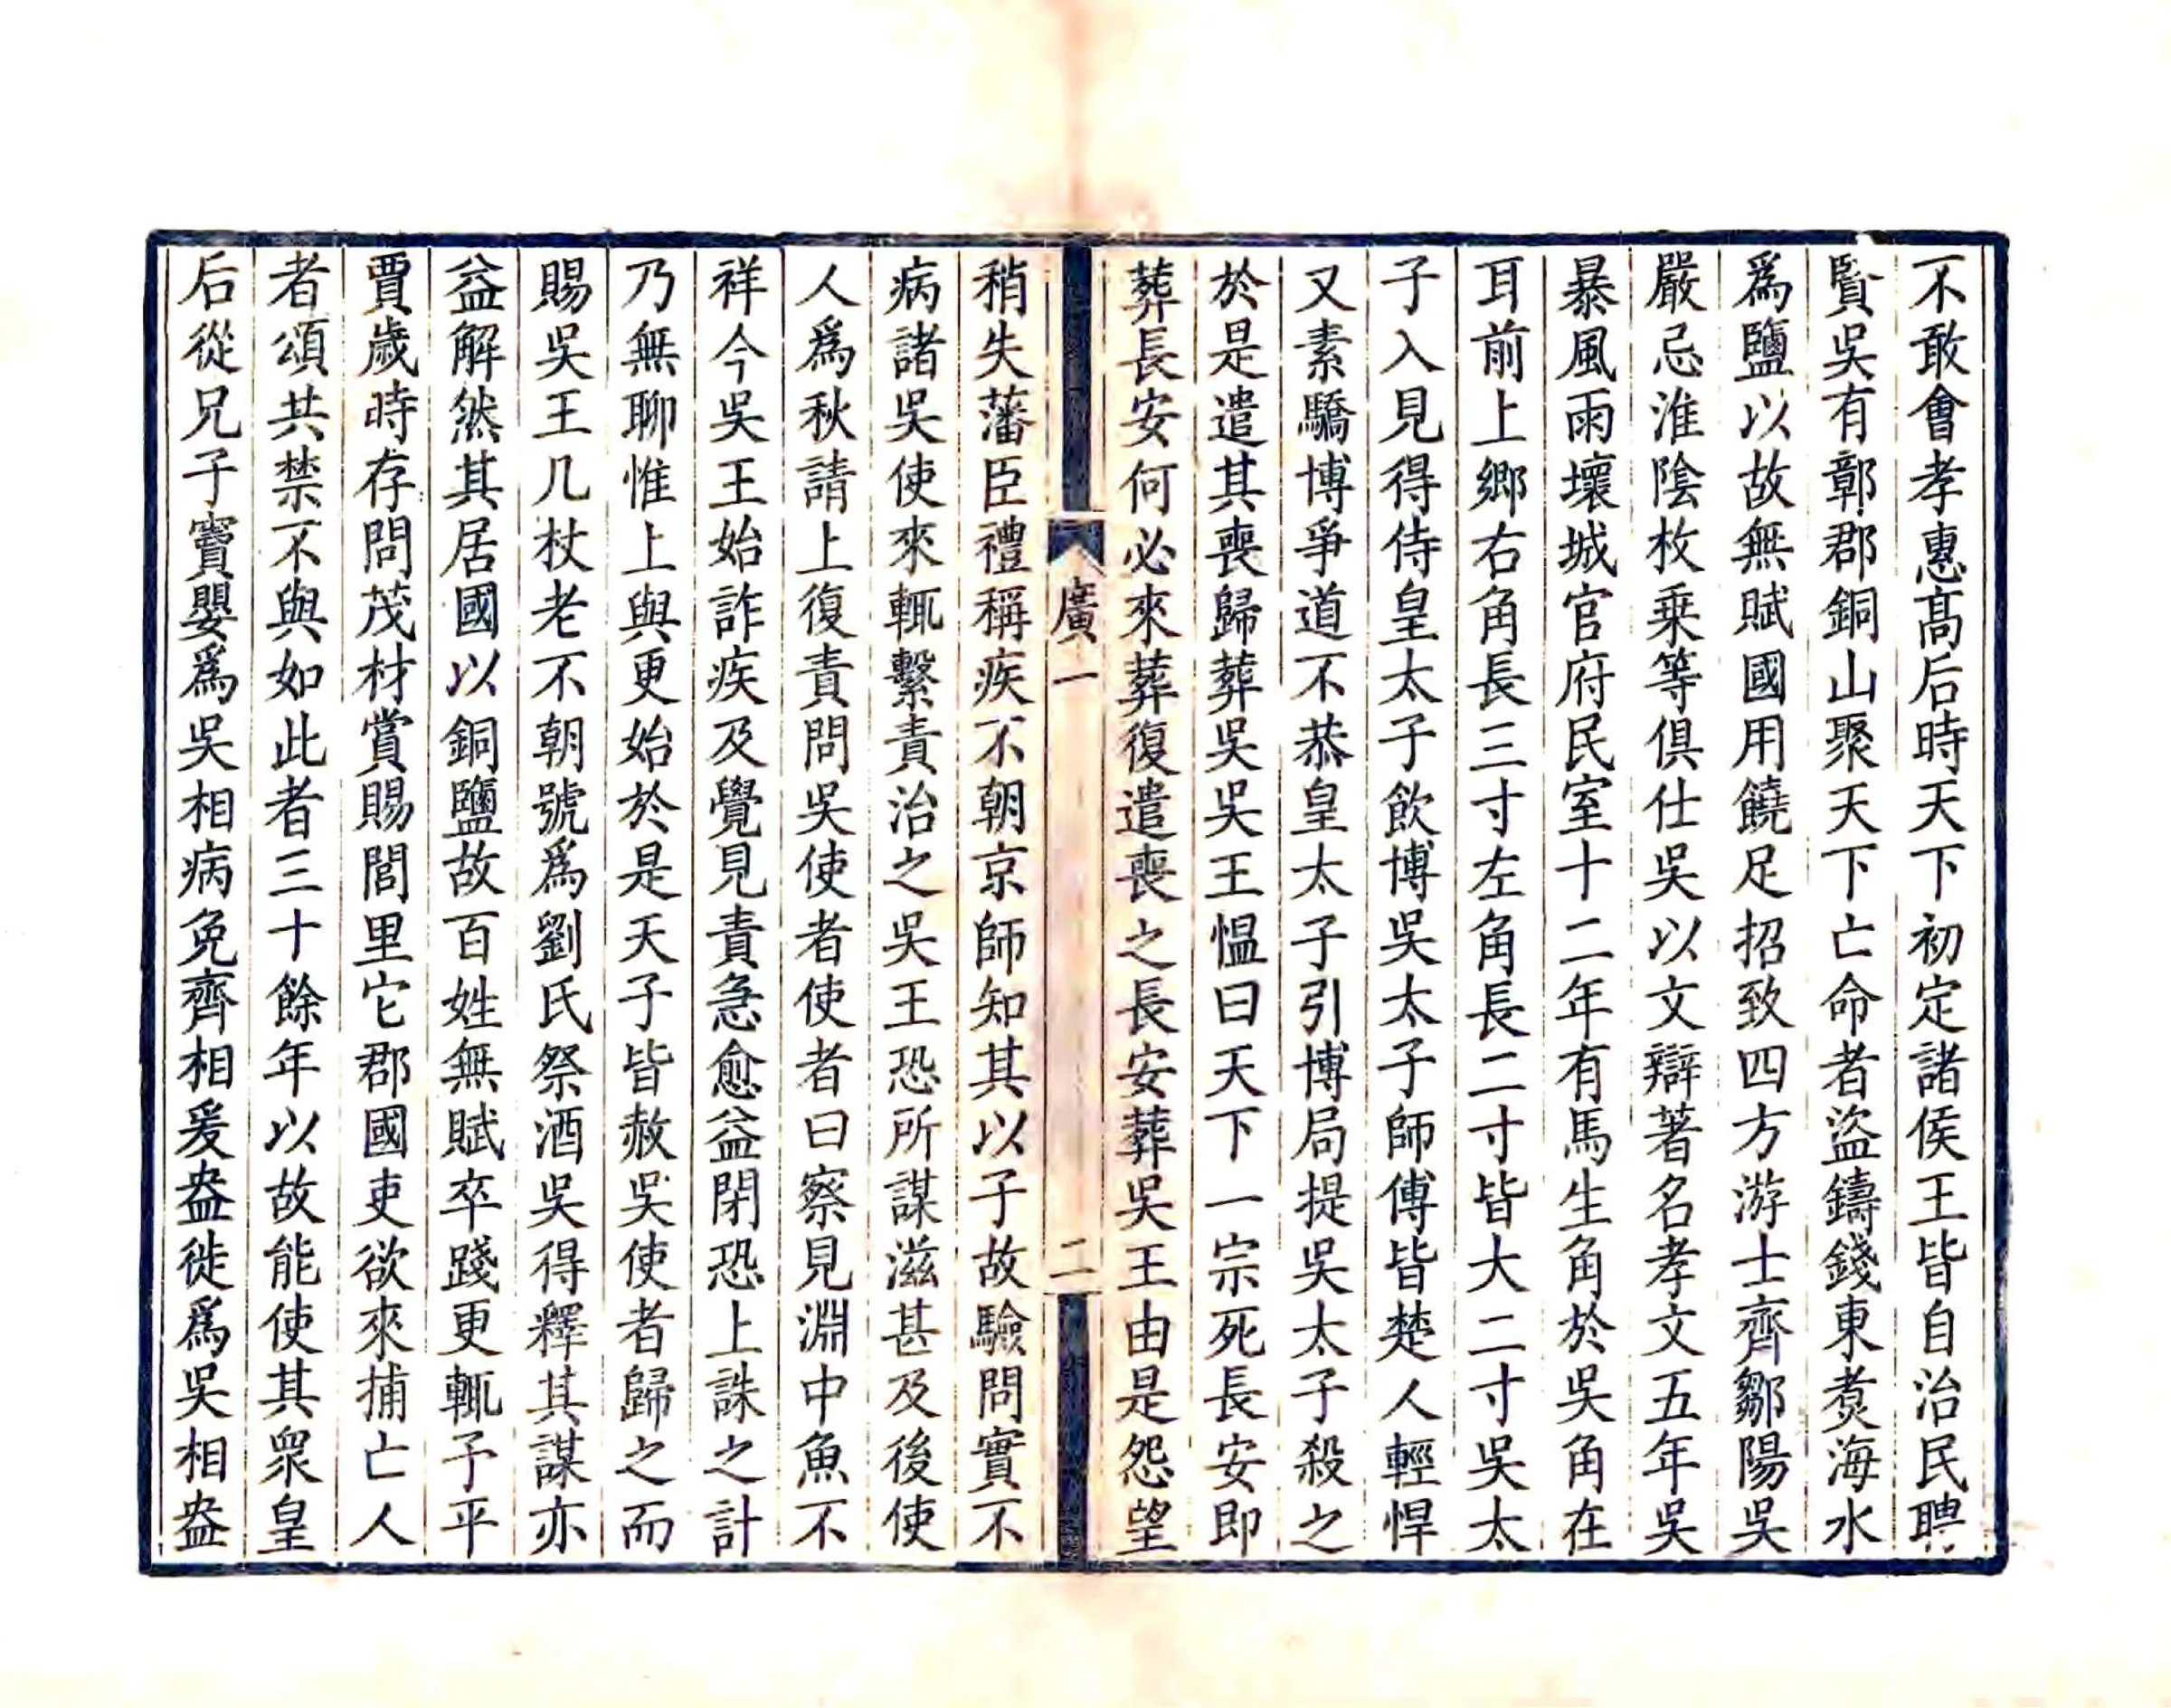 不敢會孝惠高后時天下初定諸侯王皆自治民聘
賢吳有鄣郡銅山聚天下亡命者盜鑄錢東煑海水
爲鹽以故無賦國用饒足招致四方游士齊鄒陽吳
嚴忌淮陰枚乗等俱仕吳以文辯著名孝文五年吳
暴風雨壞城官府民室十二年有馬生角於吳角在
耳前上鄉右角長三寸左角長二寸皆大二寸吳太
子入見得侍皇太子飲博吳太子師傅皆楚人輕悍
又素驕博爭道不恭皇太子引博局提吳太子殺之
於是遣其喪歸葬吳吳王愠曰天下一宗死長安即
葬長安何必來葬復遣喪之長安葬吳王由是怨望
廣一
二
稍失藩臣禮稱疾不朝京師知其以子故驗問實不
病諸吳使來輒繫責治之吳王恐所謀滋甚及後使
人爲秋請上復責問吳使者使者曰察見淵中魚不
祥今吳王始詐疾及覺見責急愈益閉恐上誅之計
乃無聊惟上與更始於是天子皆赦吳使者歸之而
賜吳王几杖老不朝號爲劉氏祭酒吳得釋其謀亦
益解然其居國以銅鹽故百姓無賦卒踐更輒予平
賈歲時存問茂材賞賜閭里它郡國吏欲來捕亡人
者頌共禁不與如此者三十餘年以故能使其衆皇
后從兄子竇嬰爲吳相病免齊相爰盎徙爲吳相盎